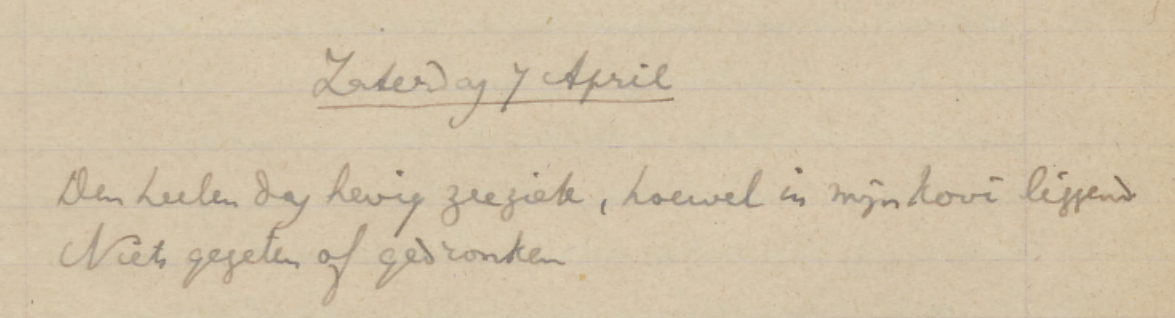 Zaterdag 7 April
Den heelen dag hevig zeeziek, hoewel in mijn kooi liggend
Niets gegeten of gedronken